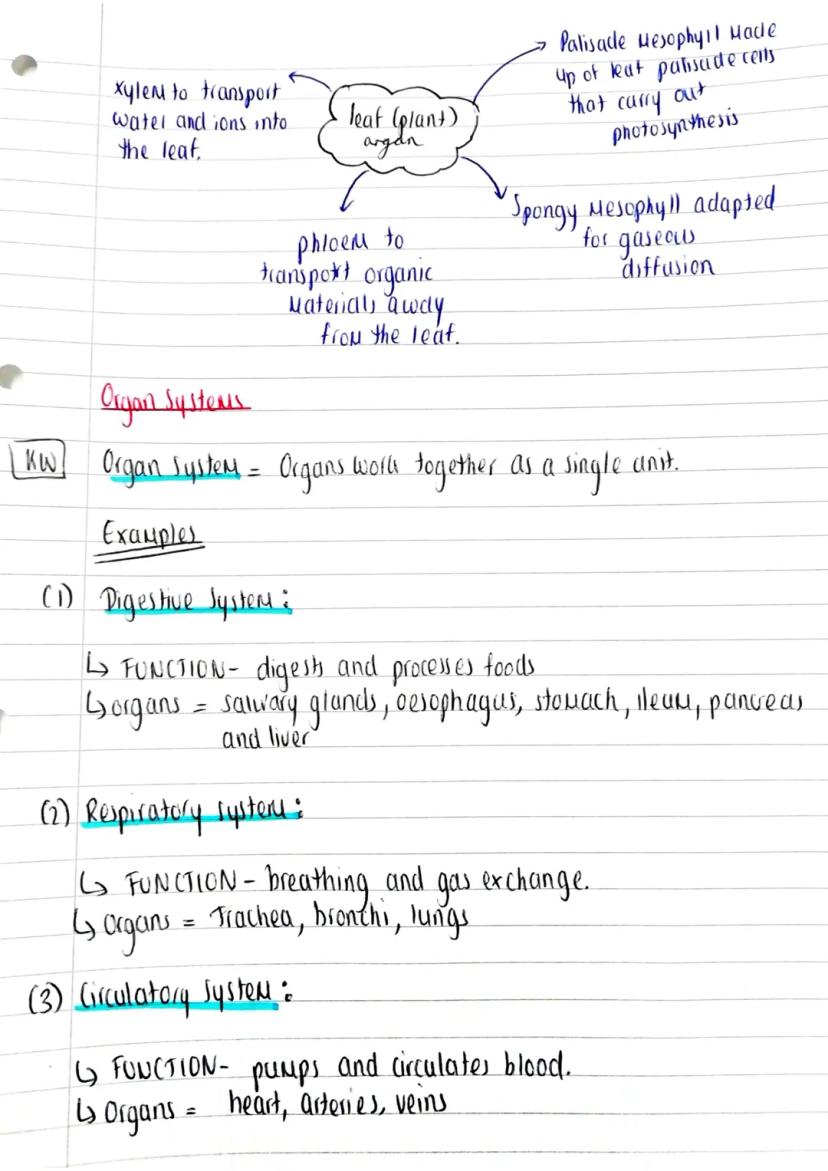 Palisade Mesophyll Made
up of leaf palisade cells
that carry out
photosynthesis
xylem to transport
water and ions into
the leaf.
leaf (plant)
organ
Spongy Mesophyll adapted
for gaseous
diffusion
phloem to
transport organic
Materials away
from the leaf.
Organ Systems
KW Organ System = Organs work together as a single unit.
Examples
(1) Digestive System:
↳ FUNCTION- digests and processes foods
↳ organs = salivary glands, oesophagus, stomach, ileum, pancreas
and liver
(2) Respiratory system:
↳ FUNCTION - breathing and gas exchange.
↳ organs = Trachea, bronchi, lungs
(3) Circulatory System:
↳ FUNCTION- pumps and circulates blood.
↳ Organs = heart, arteries, veins